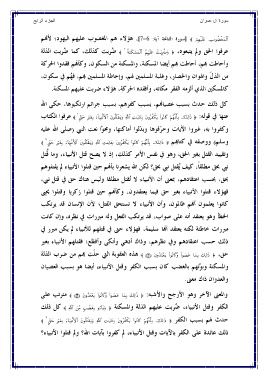 سورة آل عمران الجزء الرابع
الْمَغْضُوبِ عَلَيْهِمْ ﴾ [سورة الفاتحة آية: 6–7]. هؤلاء هم المغضوب عليهم اليهود؛ لأنهم
عرفوا الحق ولم يتبعوه، ﴿ وَضُرِبَتْ عَلَيْهِمُ الْمَسْكَنَةُ ﴾ ضُربت كذلك، كما ضُربت الذلة
وأحاطت بهم، أحاطت بهم أيضا المسكنة، والمسكنة من السكون، وكأنهم فقدوا الحركة
من الذل والهوان والخضوع، وغلبة المسلمين لهم، وإحاطة المسلمين بهم، فهُم في سكون،
كالمسكين الذي ألزمه الفقر مكانه، وأفقده الحركة. هؤلاء ضربت عليهم المسكنة.
كل ذلك حدث بسبب عصيانهم، بسبب كفرهم، بسبب جرائم ارتكبوها، حكى الله
عنها في قوله: ﴿ ذَٰلِكَ بِأَنَّهُمْ كَانُوا يَكْفُرُونَ بِآيَاتِ اللَّهِ وَيَقْتُلُونَ الْأَنبِيَاءَ بِغَيْرِ حَقٍّ ﴾ عرفوا الكتاب
وكفروا به، غيروا الآيات وحرّفوها وبدّلوا أماكنها، ومحوا نعت النبي (صلى الله عليه
وسلم) ووصفه في كتابهم ﴿ ذَٰلِكَ بِأَنَّهُمْ كَانُوا يَكْفُرُونَ بِآيَاتِ اللَّهِ وَيَقْتُلُونَ الْأَنبِيَاءَ بِغَيْرِ حَقٍّ ﴾
وتقييد القتل بغير الحق، وهو في نفس الأمر كذلك، إذ لا يصح قتل الأنبياء، وما قُتل
نبي بحق مطلقًا، كيف يُقتل نبي بحق؟ لكن ذلك يشعرنا بأنهم حين قتلوا الأنبياء لم يقتلوهم
بحق، بحسب اعتقادهم، بمعنى أن الأنبياء لا تُقتل مطلقًا وليس هناك حق في قتل نبي،
فهؤلاء قتلوا الأنبياء بغير حق فيما يعتقدون، وكأنهم حين قتلوا زكريا وقتلوا يحيى
كانوا يعلمون أنهم ظالمون، وأن الأنبياء لا تستحق القتل؛ لأن الإنسان قد يرتكب
الخطأ وهو يعتقد أنه على صواب، قد يرتكب الفعل وله مبررات في نظره، وإن كانت
مبررات خاطئة لكنه يعتقد أنها سليمة، فهؤلاء حتى في قتلهم للأنبياء لم يكن مبرر في
ذلك حسب اعتقادهم وفي نظرهم، وذاك أدهى وأنكى وأفظع: قتلهم الأنبياء بغير
حق، ﴿ ذَٰلِكَ بِمَا عَصَوا وَّكَانُوا يَعْتَدُونَ ﴾ هذه العقوبة التي حلّت بهم من ضرب الذلة
والمسكنة وبؤتهم بالغضب كان بسبب الكفر وقتل الأنبياء، أيضا هو بسبب العصيان
والعدوان ذاك معنى.
والمعنى الآخر وهو الأرجح والأشبه: ﴿ ذَٰلِكَ بِمَا عَصَوا وَّكَانُوا يَعْتَدُونَ ﴾ مترتب على
الكفر وقتل الأنبياء، ضُربت عليهم الذلة والمسكنة ﴿ وَبَاءُوا بِغَضَبٍ مِّنَ اللَّهِ ﴾ كل ذلك
حدث لهم بسبب الكفر ﴿ ذَٰلِكَ بِأَنَّهُمْ كَانُوا يَكْفُرُونَ بِآيَاتِ اللَّهِ وَيَقْتُلُونَ الْأَنبِيَاءَ بِغَيْرِ حَقٍّ ﴾
ذلك عائدة على الكفر بالآيات وقتل الأنبياء، لم كفروا بآيات الله؟ ولم قتلوا الأنبياء؟